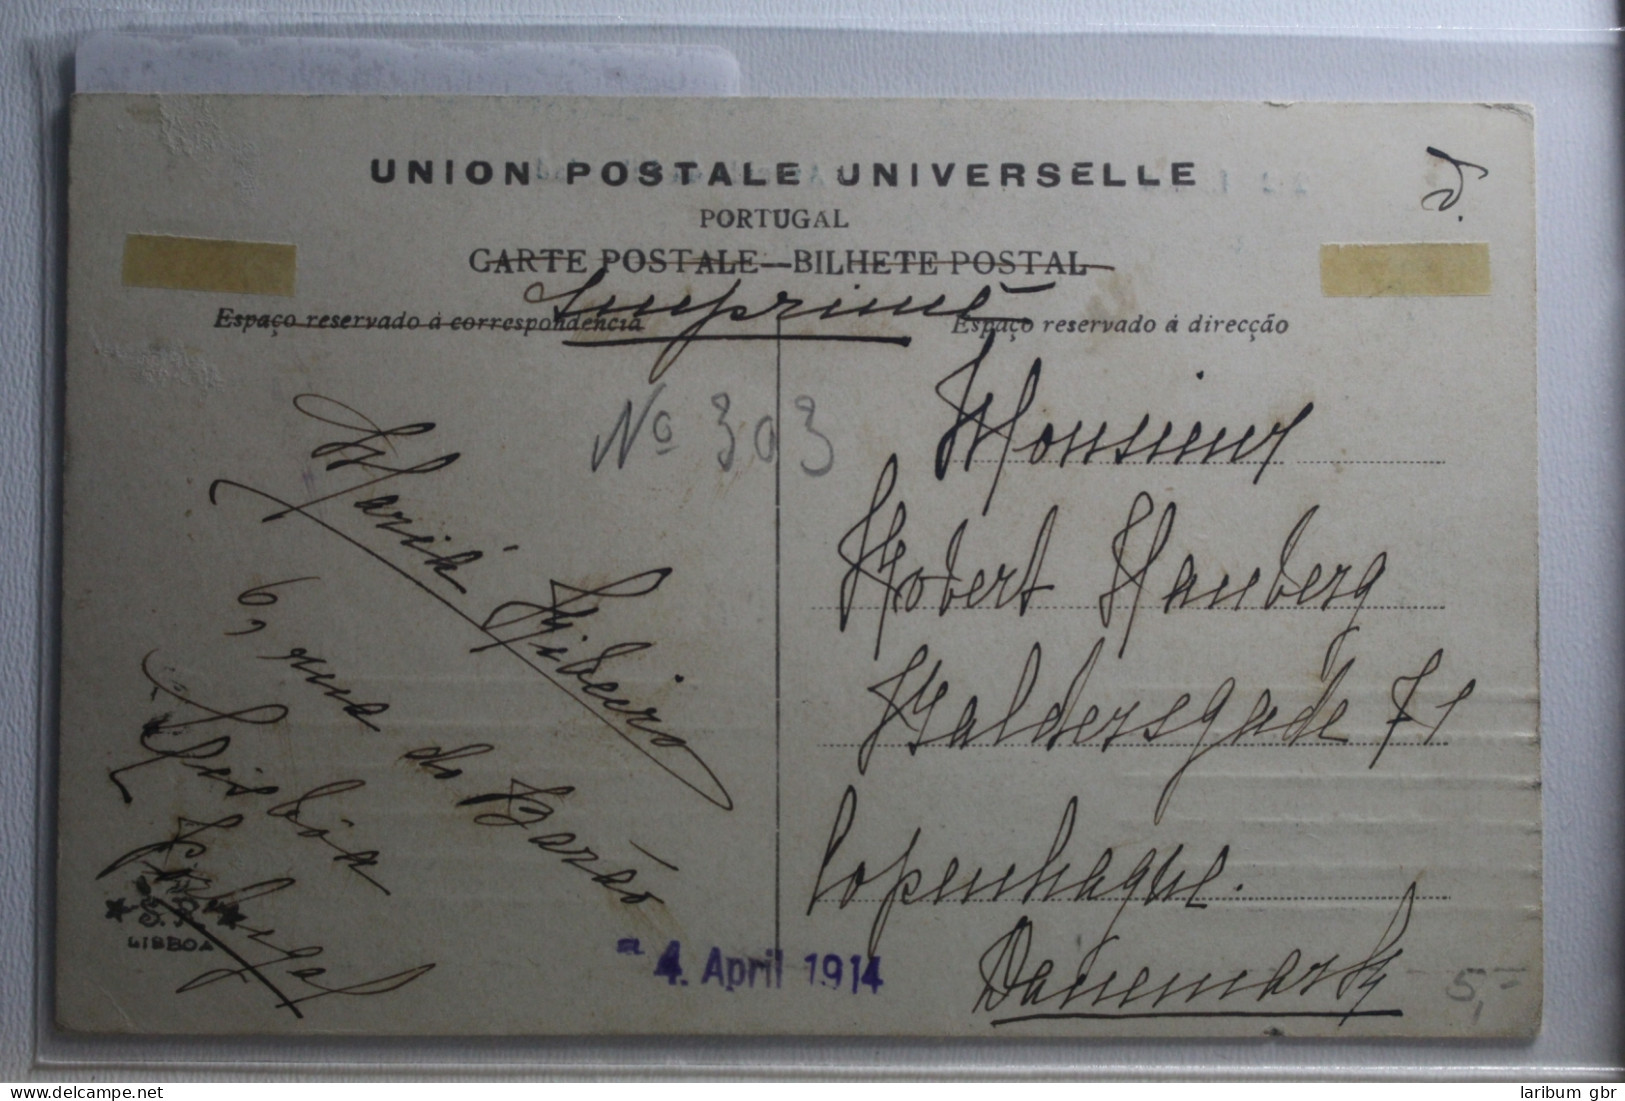 UNION POSTALE UNIVERSELLE
PORTUGAL
CARTE POSTALE—BILHETE POSTAL
Imprimé
Espaço reservado á correspondencia
Espaço reservado á direcção
Nº 303
Mariá Ribeiro
6, rua do Barão
Lisbôa
Portugal
LISBOA
4. April 1914
Monsieur
Robert Hauberg
Baldersgade 71
Copenhague.
Danemark
5,-
delcampe.net
laribum gbr